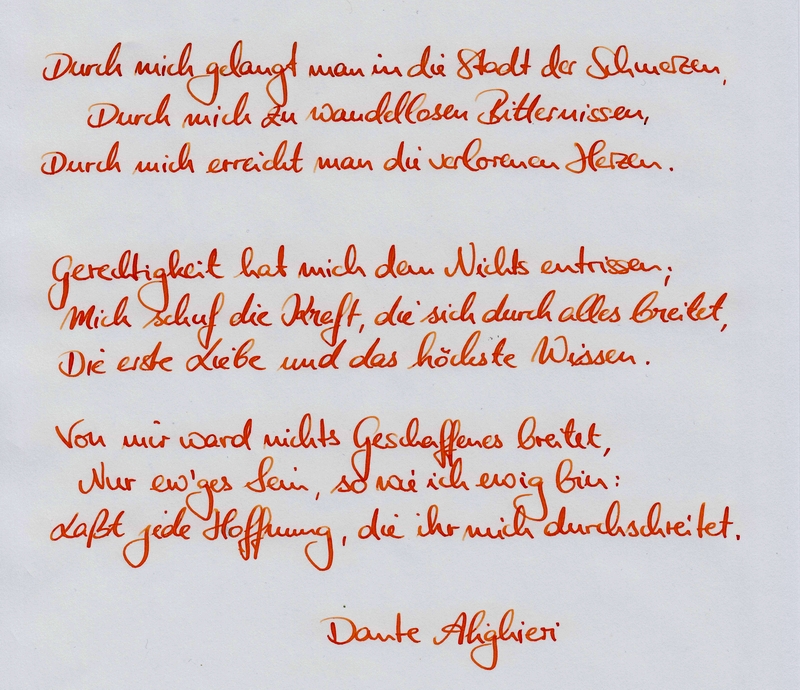 Durch mich gelangt man in die Stadt der Schmerzen,
Durch mich zu wandellosen Bitternissen,
Durch mich erreicht man die verlorenen Herzen.
Gerechtigkeit hat mich dem Nichts entrissen;
Mich schuf die Kraft, die sich durch alles breitet,
Die erste Liebe und das höchste Wissen.
Von mir ward nichts Geschaffenes breitet,
Nur ew'ges Sein, so wie ich ewig bin:
Laßt jede Hoffnung, die ihr mich durchschreitet.
Dante Alighieri